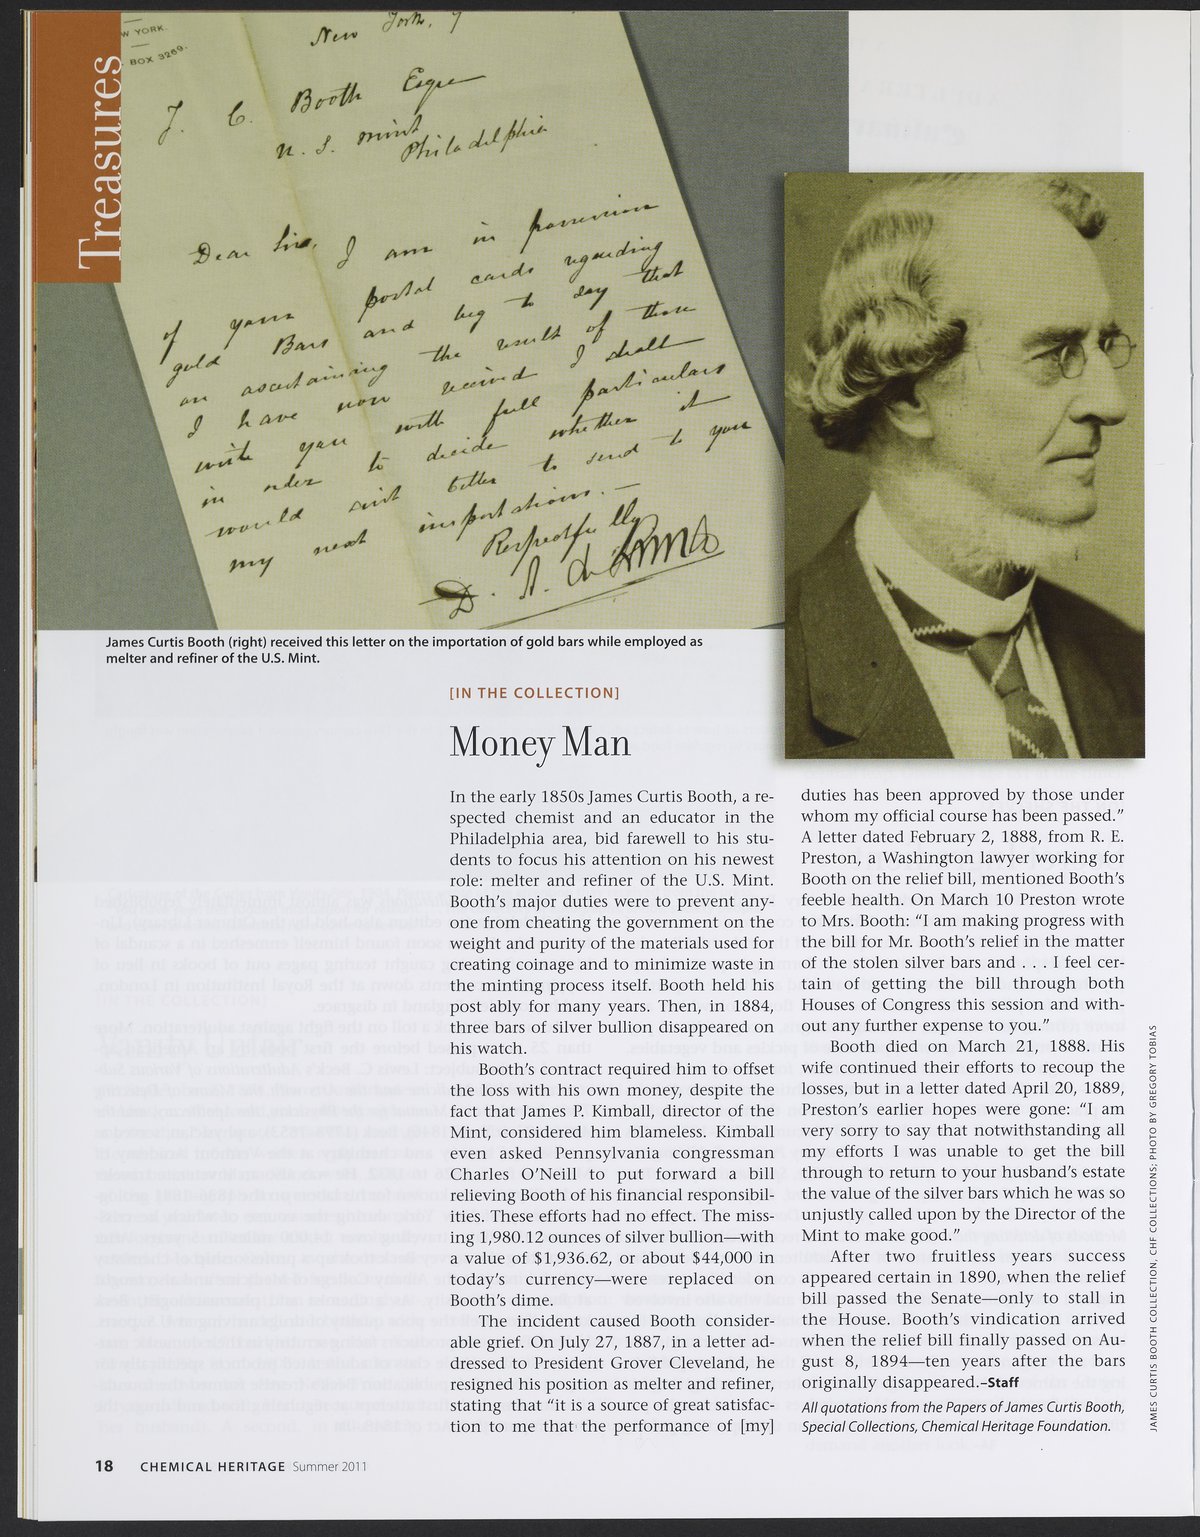 Treasures
W YORK.
BOX 3269.
New York,
J. C. Booth Esqre
U. S. Mint
Philadelphia
Dear Sir, I am in possession
of yours postal cards regarding
gold Bars and beg to say that
on ascertaining the result of those
I have now received I shall
write you with full particulars
in order to decide whether it
would suit better to send to you
my next importations.—
Respectfully
D. A. de
James Curtis Booth (right) received this letter on the importation of gold bars while employed as
melter and refiner of the U.S. Mint.
[IN THE COLLECTION]
Money Man
In the early 1850s James Curtis Booth, a re-
spected chemist and an educator in the
Philadelphia area, bid farewell to his stu-
dents to focus his attention on his newest
role: melter and refiner of the U.S. Mint.
Booth’s major duties were to prevent any-
one from cheating the government on the
weight and purity of the materials used for
creating coinage and to minimize waste in
the minting process itself. Booth held his
post ably for many years. Then, in 1884,
three bars of silver bullion disappeared on
his watch.
Booth’s contract required him to offset
the loss with his own money, despite the
fact that James P. Kimball, director of the
Mint, considered him blameless. Kimball
even asked Pennsylvania congressman
Charles O’Neill to put forward a bill
relieving Booth of his financial responsibil-
ities. These efforts had no effect. The miss-
ing 1,980.12 ounces of silver bullion—with
a value of $1,936.62, or about $44,000 in
today’s currency—were replaced on
Booth’s dime.
The incident caused Booth consider-
able grief. On July 27, 1887, in a letter ad-
dressed to President Grover Cleveland, he
resigned his position as melter and refiner,
stating that “it is a source of great satisfac-
tion to me that the performance of [my]
duties has been approved by those under
whom my official course has been passed.”
A letter dated February 2, 1888, from R. E.
Preston, a Washington lawyer working for
Booth on the relief bill, mentioned Booth’s
feeble health. On March 10 Preston wrote
to Mrs. Booth: “I am making progress with
the bill for Mr. Booth’s relief in the matter
of the stolen silver bars and . . . I feel cer-
tain of getting the bill through both
Houses of Congress this session and with-
out any further expense to you.”
Booth died on March 21, 1888. His
wife continued their efforts to recoup the
losses, but in a letter dated April 20, 1889,
Preston’s earlier hopes were gone: “I am
very sorry to say that notwithstanding all
my efforts I was unable to get the bill
through to return to your husband’s estate
the value of the silver bars which he was so
unjustly called upon by the Director of the
Mint to make good.”
After two fruitless years success
appeared certain in 1890, when the relief
bill passed the Senate—only to stall in
the House. Booth’s vindication arrived
when the relief bill finally passed on Au-
gust 8, 1894—ten years after the bars
originally disappeared.–Staff
All quotations from the Papers of James Curtis Booth,
Special Collections, Chemical Heritage Foundation.
JAMES CURTIS BOOTH COLLECTION, CHF COLLECTIONS; PHOTO BY GREGORY TOBIAS
18 CHEMICAL HERITAGE Summer 2011